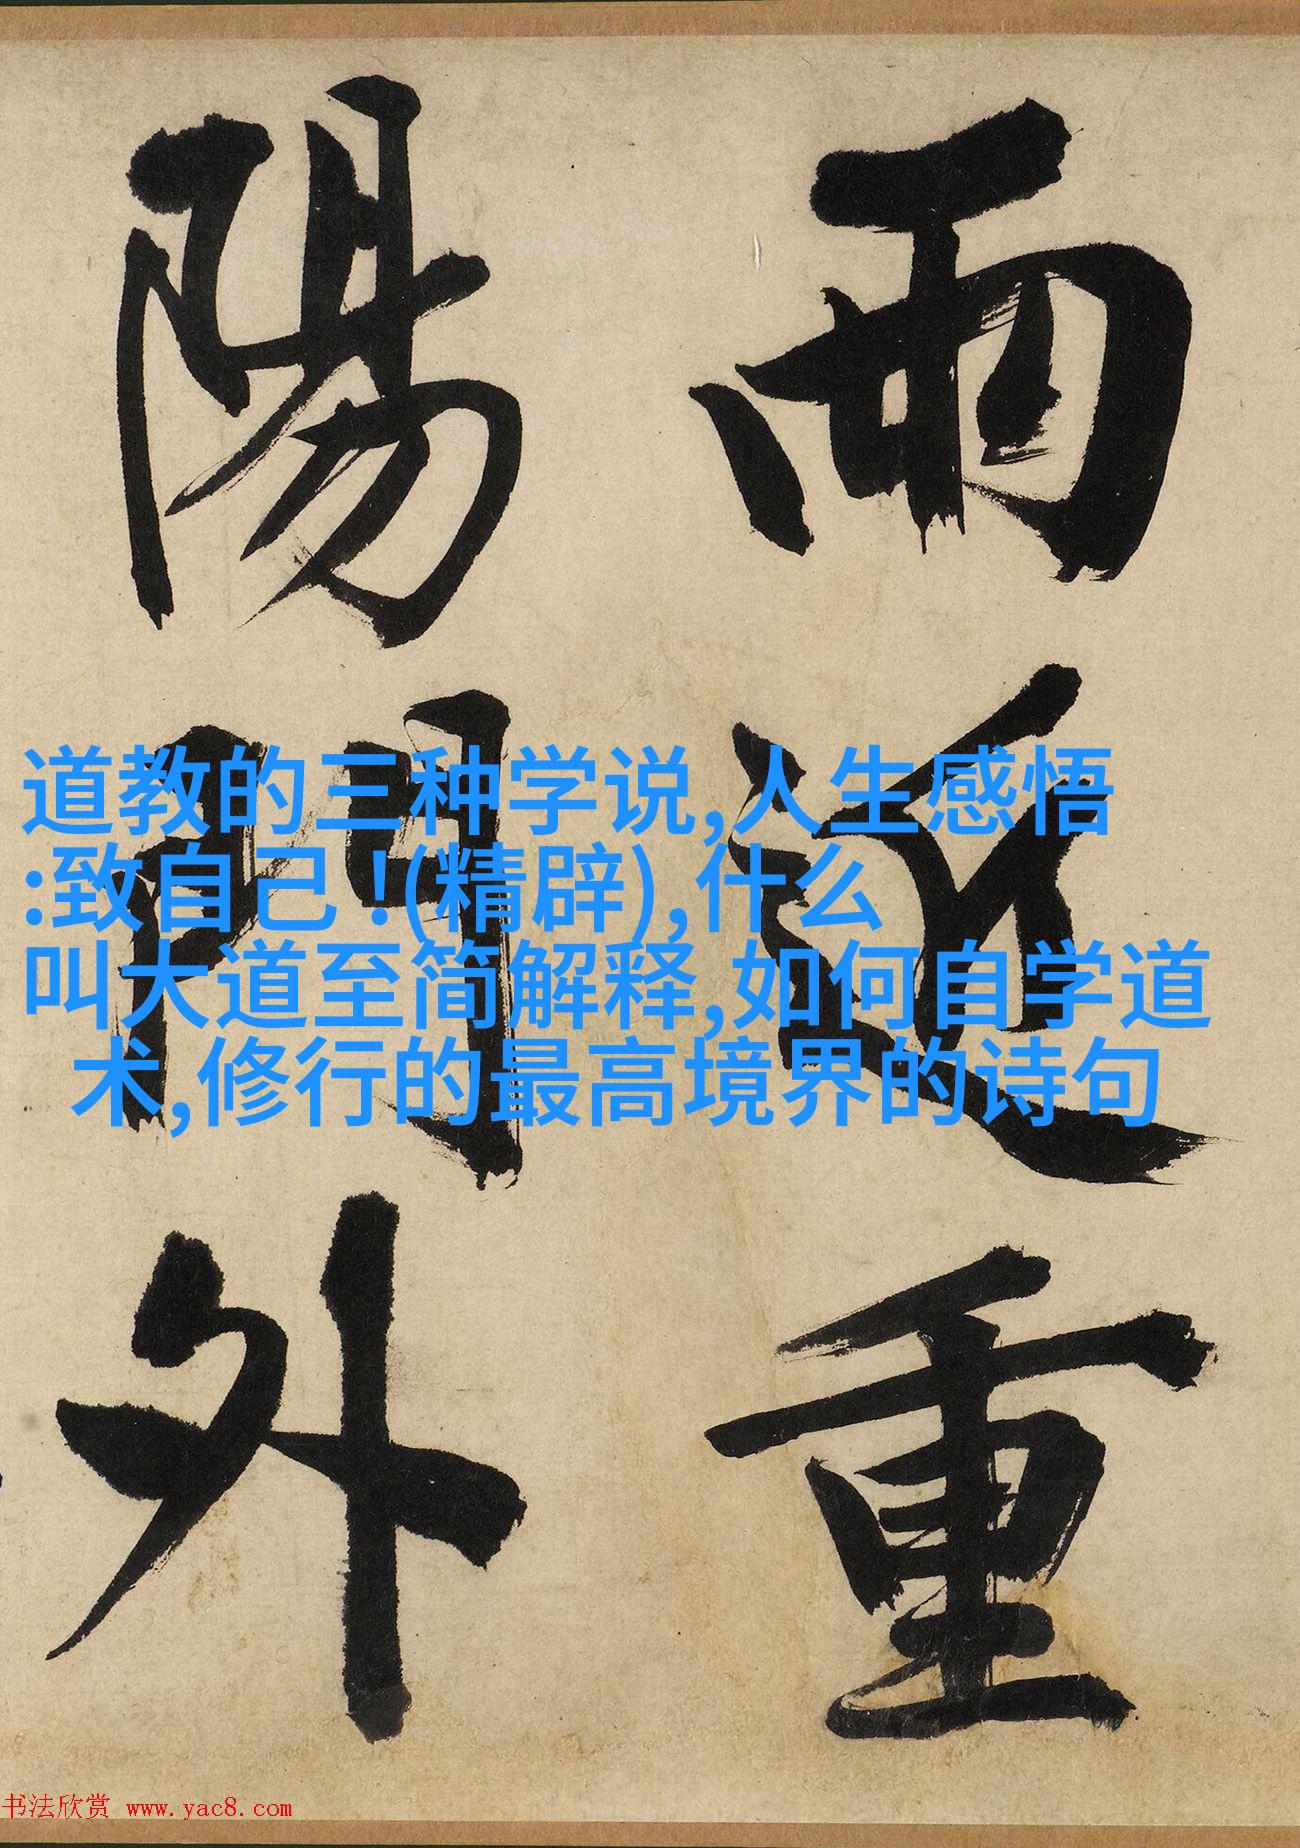 雨近重
陽門外
道教的三种学说,人生感悟
:致自己 !(精辟),什么
叫大道至简解释,如何自学道
术,修行的最高境界的诗句
书法欣赏 www.yac8.com